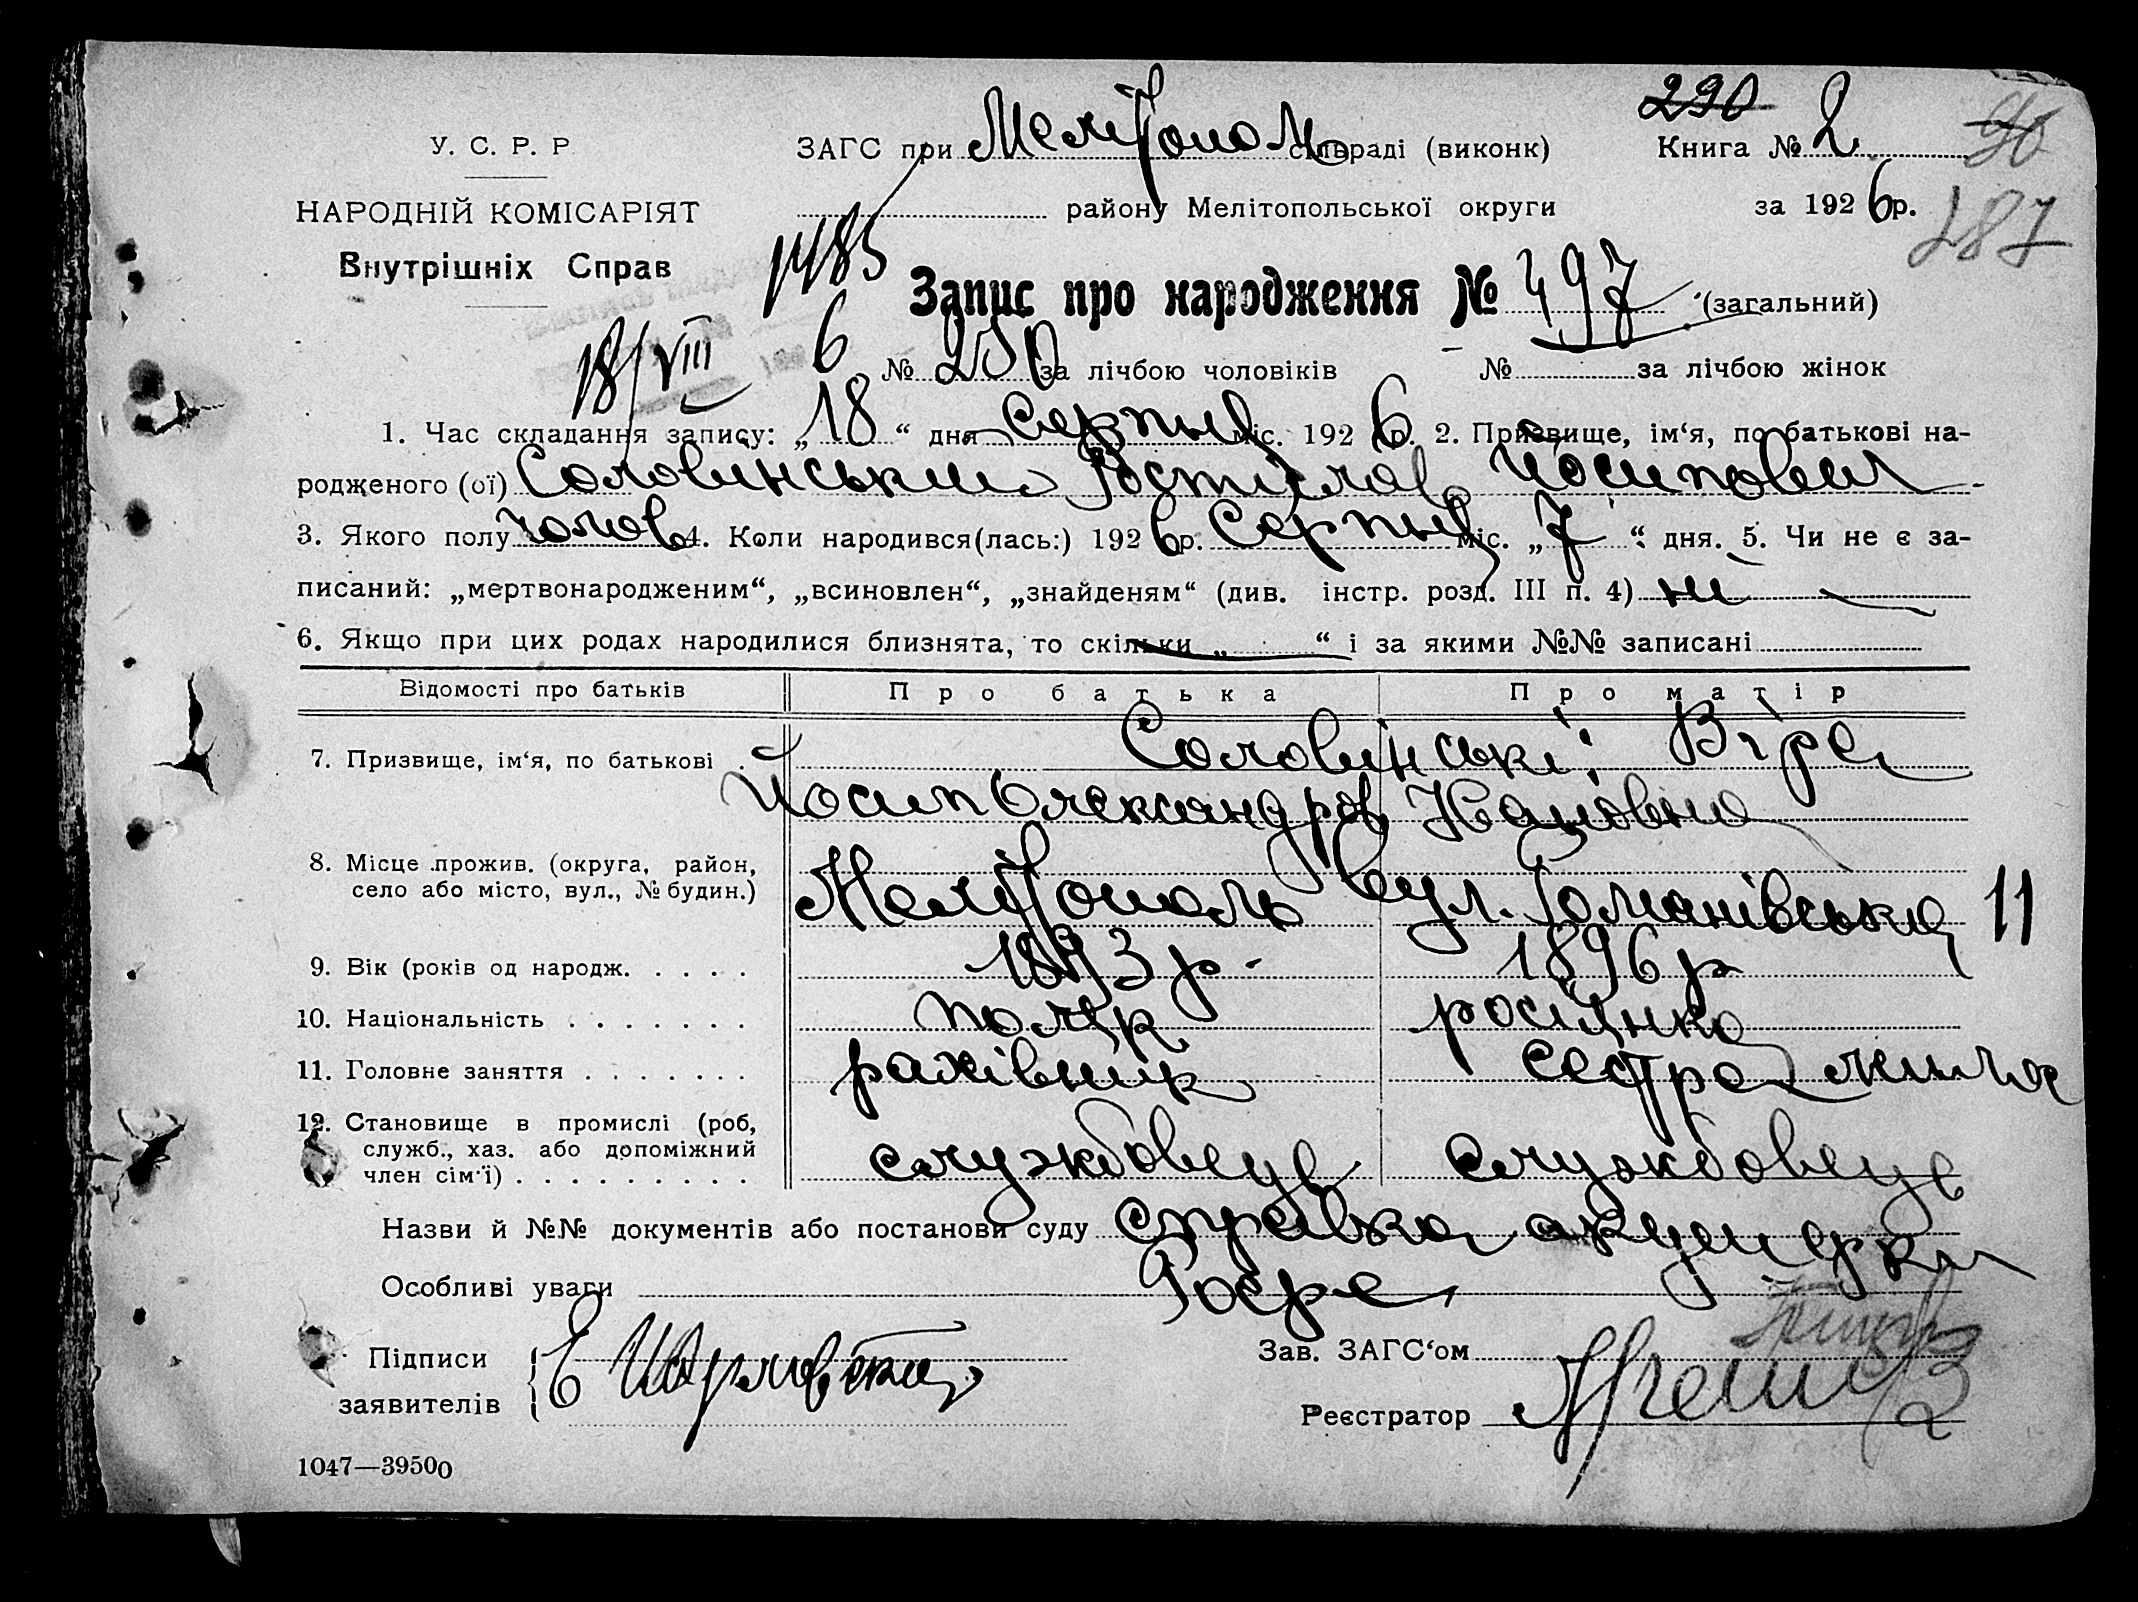 290 2
У. С. Р. Р. ЗАГС при Мелітопольсільраді (виконк) Книга № 90
НАРОДНІЙ КОМІСАРІЯТ району Мелітопольської округи за 1926р. 287
Внутрішніх Справ 1485
Запис про народження № 497 (загальний)
18/VIII 6 № 250 за лічбою чоловіків — № за лічбою жінок
1. Час складання запису: „18“ дня Серпня міс. 1926 р. 2. Призвище, ім‘я, по батькові на-
родженого (ої) Соловинський Ростіслав Йосипович
3. Якого полу чолов 4. Коли народився(лась:) 1926р. Серпня міс. „7“ дня. 5. Чи не є за-
писаний: „мертвонародженим“, „всиновлен“, „знайденям“ (див. інстр. розд. III п. 4) ні
6. Якщо при цих родах народилися близнята, то скільки „ “ і за якими №№ записані
Відомості про батьків Про батька Про матір
7. Призвище, ім‘я, по батькові Соловінські: Віра
Йосип Олександров Івановна
8. Місце прожив. (округа, район,
село або місто, вул., № будин.) Мелітополь вул. Романівська 11
9. Вік (років од народж. 1893 р. 1896 р
10. Національність поляк росіянка
11. Головне заняття рахівник сестра жалю
12. Становище в промислі (роб,
служб., хаз. або допоміжний
член сім‘ї) службовець службовець
Назви й №№ документів або постанови суду справка акушерки
Особливі уваги
Підписи
заявителів
Зав. ЗАГС‘ом
Реєстратор
1047—39500